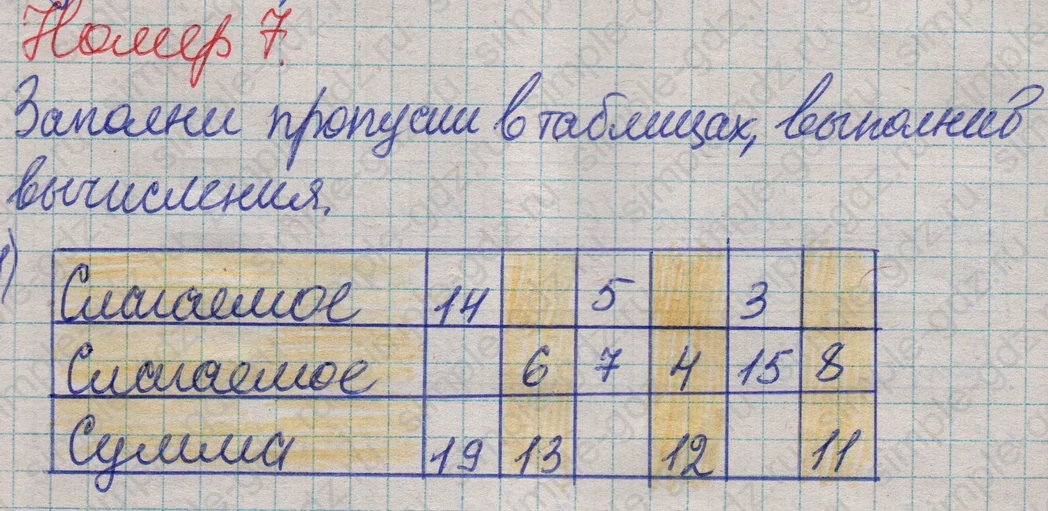 Номер 7.
Заполни пропуски в таблицах, выполнив
вычисления.
1)
Слагаемое 14 5 3
Слагаемое 6 7 4 15 8
Сумма 19 13 12 11
simple-gdz.ru